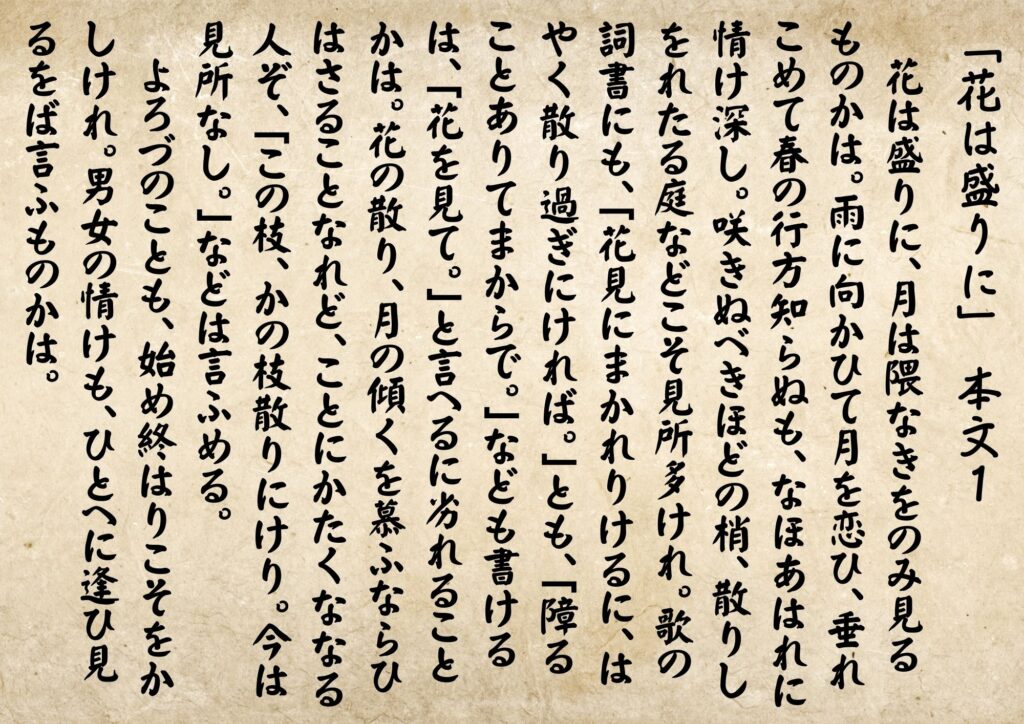 「花は盛りに」　本文１
花は盛りに、月は隈なきをのみ見る
ものかは。雨に向かひて月を恋ひ、垂れ
こめて春の行方知らぬも、なほあはれに
情け深し。咲きぬべきほどの梢、散りし
をれたる庭などこそ見所多けれ。歌の
詞書にも、「花見にまかれりけるに、は
やく散り過ぎにければ。」とも、「障る
ことありてまからで。」なども書ける
は、「花を見て。」と言へるに劣れること
かは。花の散り、月の傾くを慕ふならひ
はさることなれど、ことにかたくななる
人ぞ、「この枝、かの枝散りにけり。今は
見所なし。」などは言ふめる。
よろづのことも、始め終はりこそをか
しけれ。男女の情けも、ひとへに逢ひ見
るをば言ふものかは。